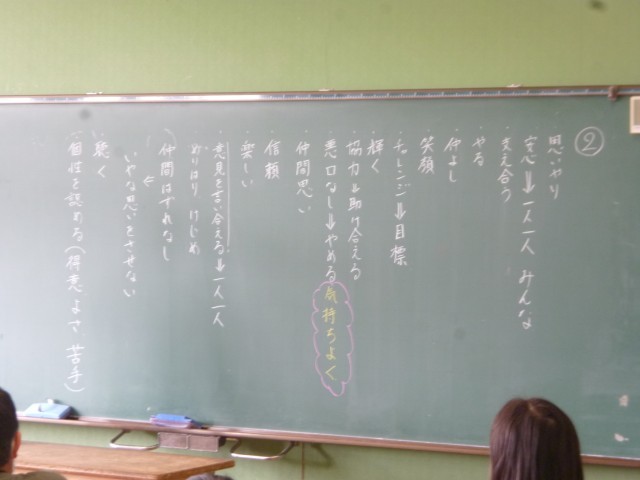 ②
思いやり
・意見⇒一人一人 みんな
・支え合う
・やる
・仲よし
・笑顔
・チャレンジ⇒目標
・輝く
・協力と助け合える
・悪口なし→やめる 気持ちよく
・仲間思い
・信頼
・楽しい
・意見を言い合える→一人一人
めりはり けじめ
仲間はずれなし
いやな思いをさせない
聴く
個性を認める(得意 よさ 苦手)